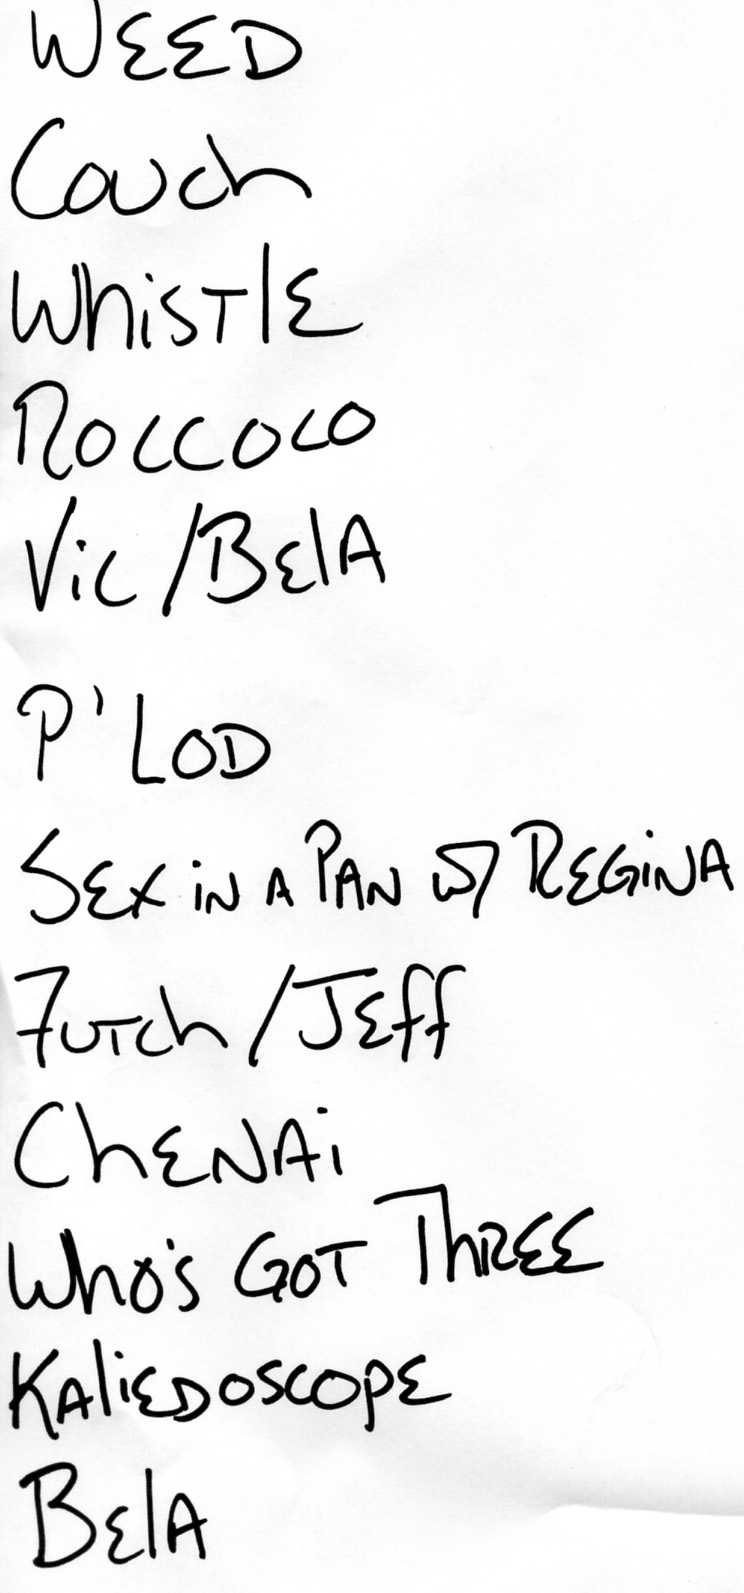 WEED
Couch
WhisTlE
Roccoco
Vic/BElA
P'LOD
SEX iN A PAN w/ REGiNA
Futch/JEff
ChENAi
Who's GOT ThREE
KAliEDOSCOPE
BElA